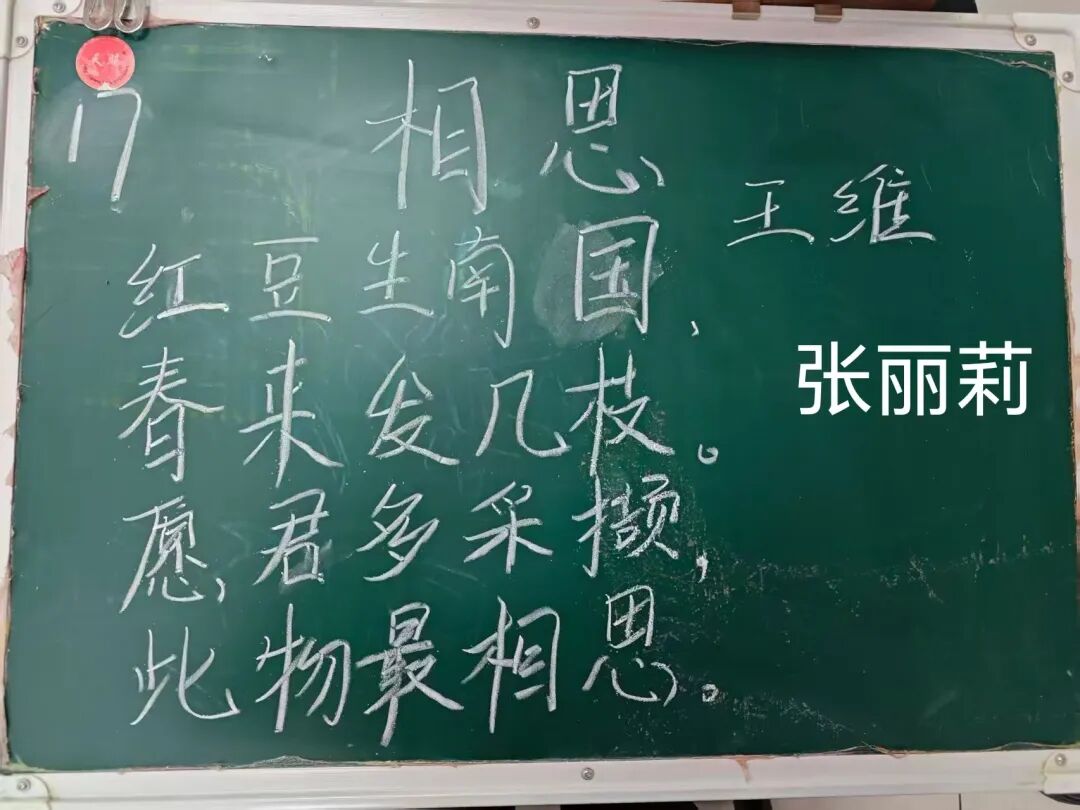 17 相思
王维
红豆生南国,
春来发几枝。
愿君多采撷,
此物最相思。
张丽莉